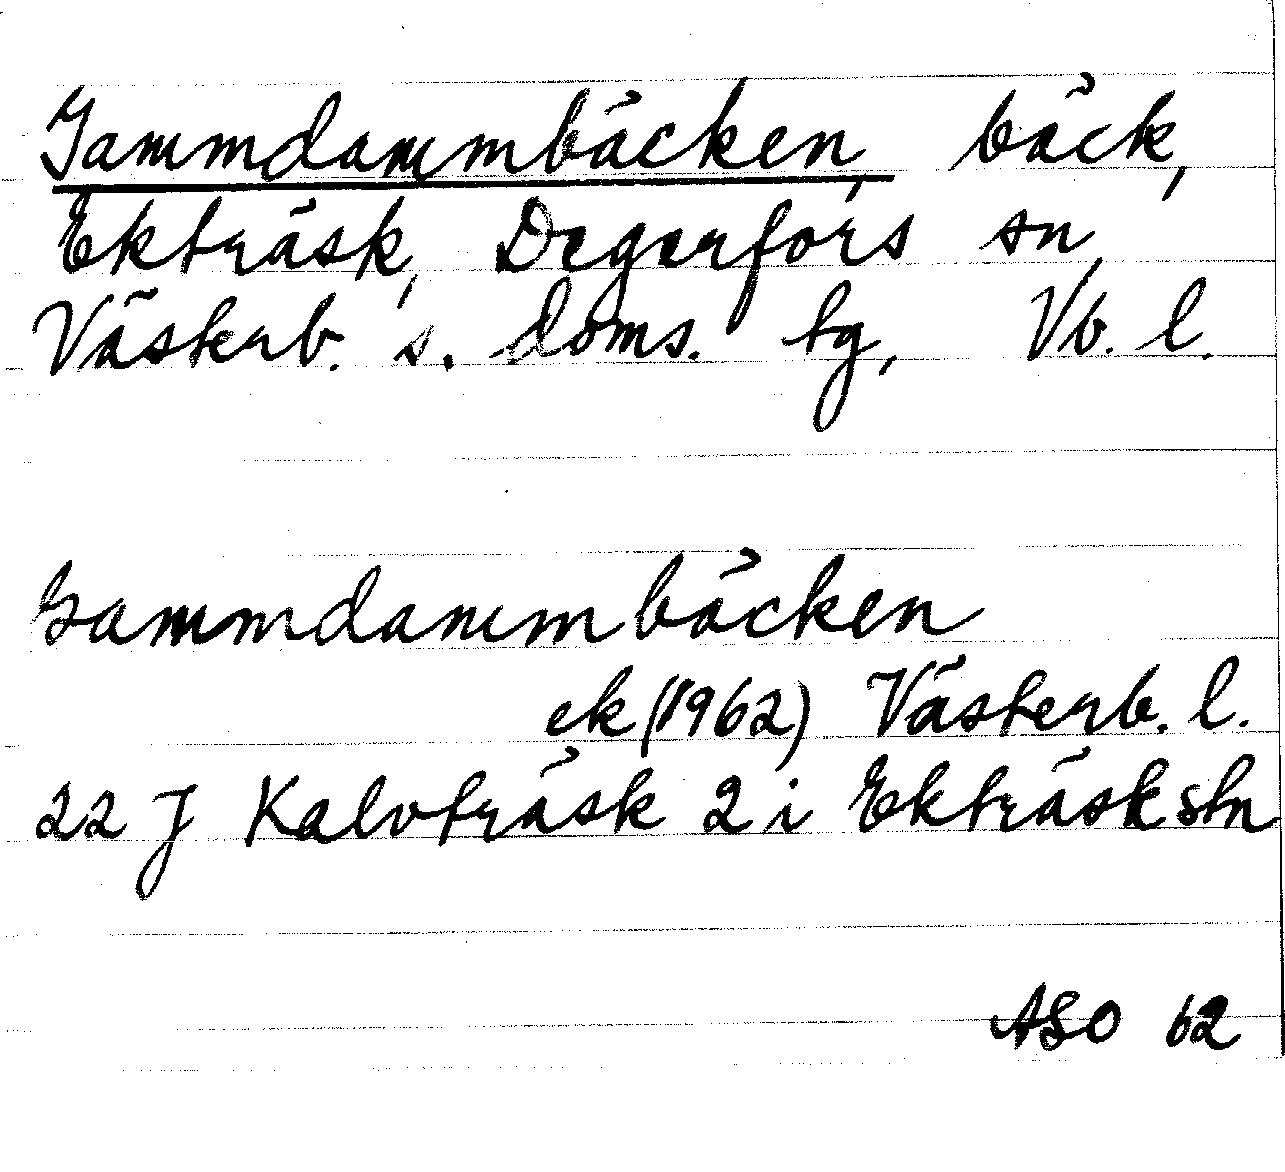 Gammdammbäcken, bäck,
Ekträsk, Degerfors sn,
Västerb. s. doms. tg, Vb. l.
Gammdammbäcken
ek (1962) Västerb. l.
22 J Kalvträsk 2 i Ekträsk stn
ASO 62